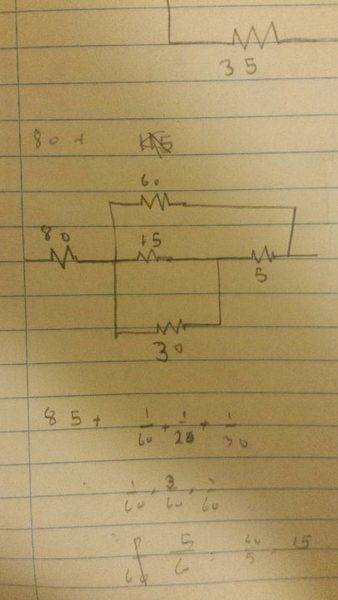 35
80 +
60
80 15
5
30
85 + 1/60 + 1/20 + 1/30
1/60 3/60 1/60
5/6 60/5 15